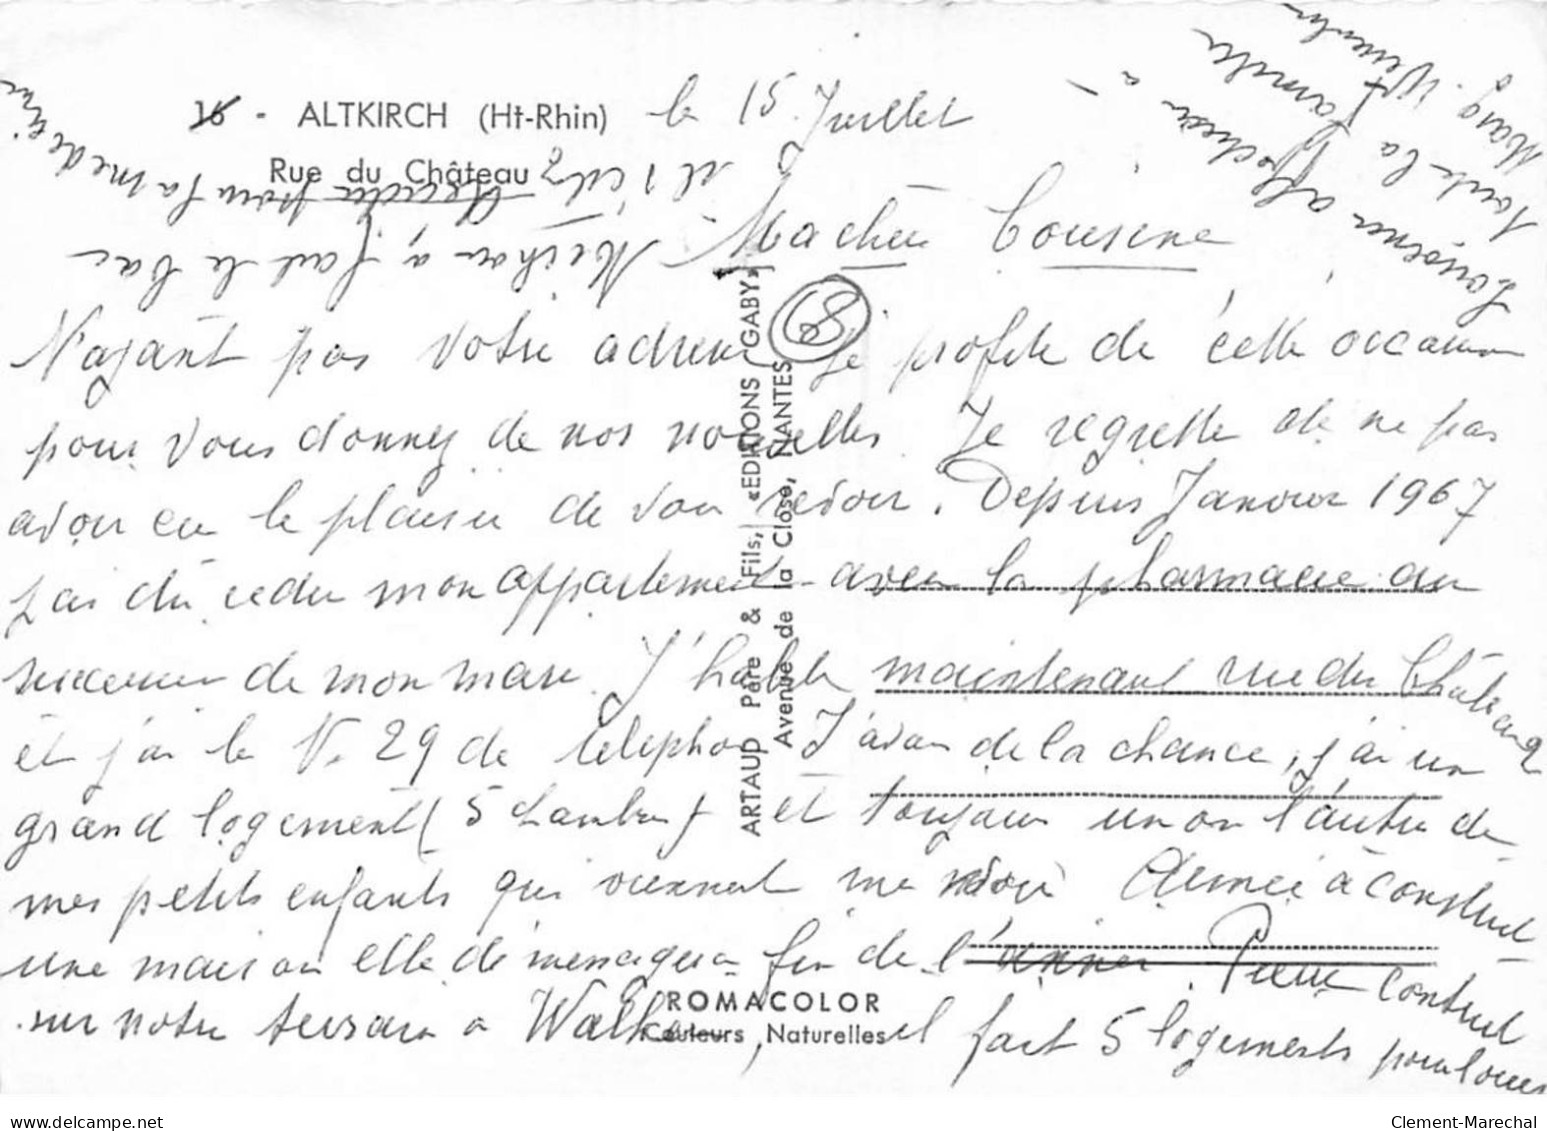 16 - ALTKIRCH (Ht-Rhin) le 15 Juillet
Rue du Château
Ma chère Cousine
N'ayant pas votre adresse je profite de cette occasion
pour vous donner de nos nouvelles. Je regrette de ne pas
avoir eu le plaisir de vous revoir. Depuis Janvier 1967
j'ai dû céder mon appartement avec la pharmacie au
successeur de mon mari. J'habite maintenant rue du Château
et j'ai le N. 29 de telephone J'avais de la chance, j'ai un
grand logement (5 chambres) et toujours un ou l'autre de
mes petits enfants qui viennent me voir Aimée à construit
une maison elle déménagera fin de l'année. Pierre construit
sur notre terrain à, il fait 5 logements pour louer
Meilhou à fait le bac
il s'est décidé pour la médecine
à
Toute la famille
Marg.
ARTAUD Père & Fils, «EDITIONS GABY»
Avenue de la Close, NANTES
68
ROMACOLOR
Couleurs Naturelles
delcampe.net
Clement-Marechal